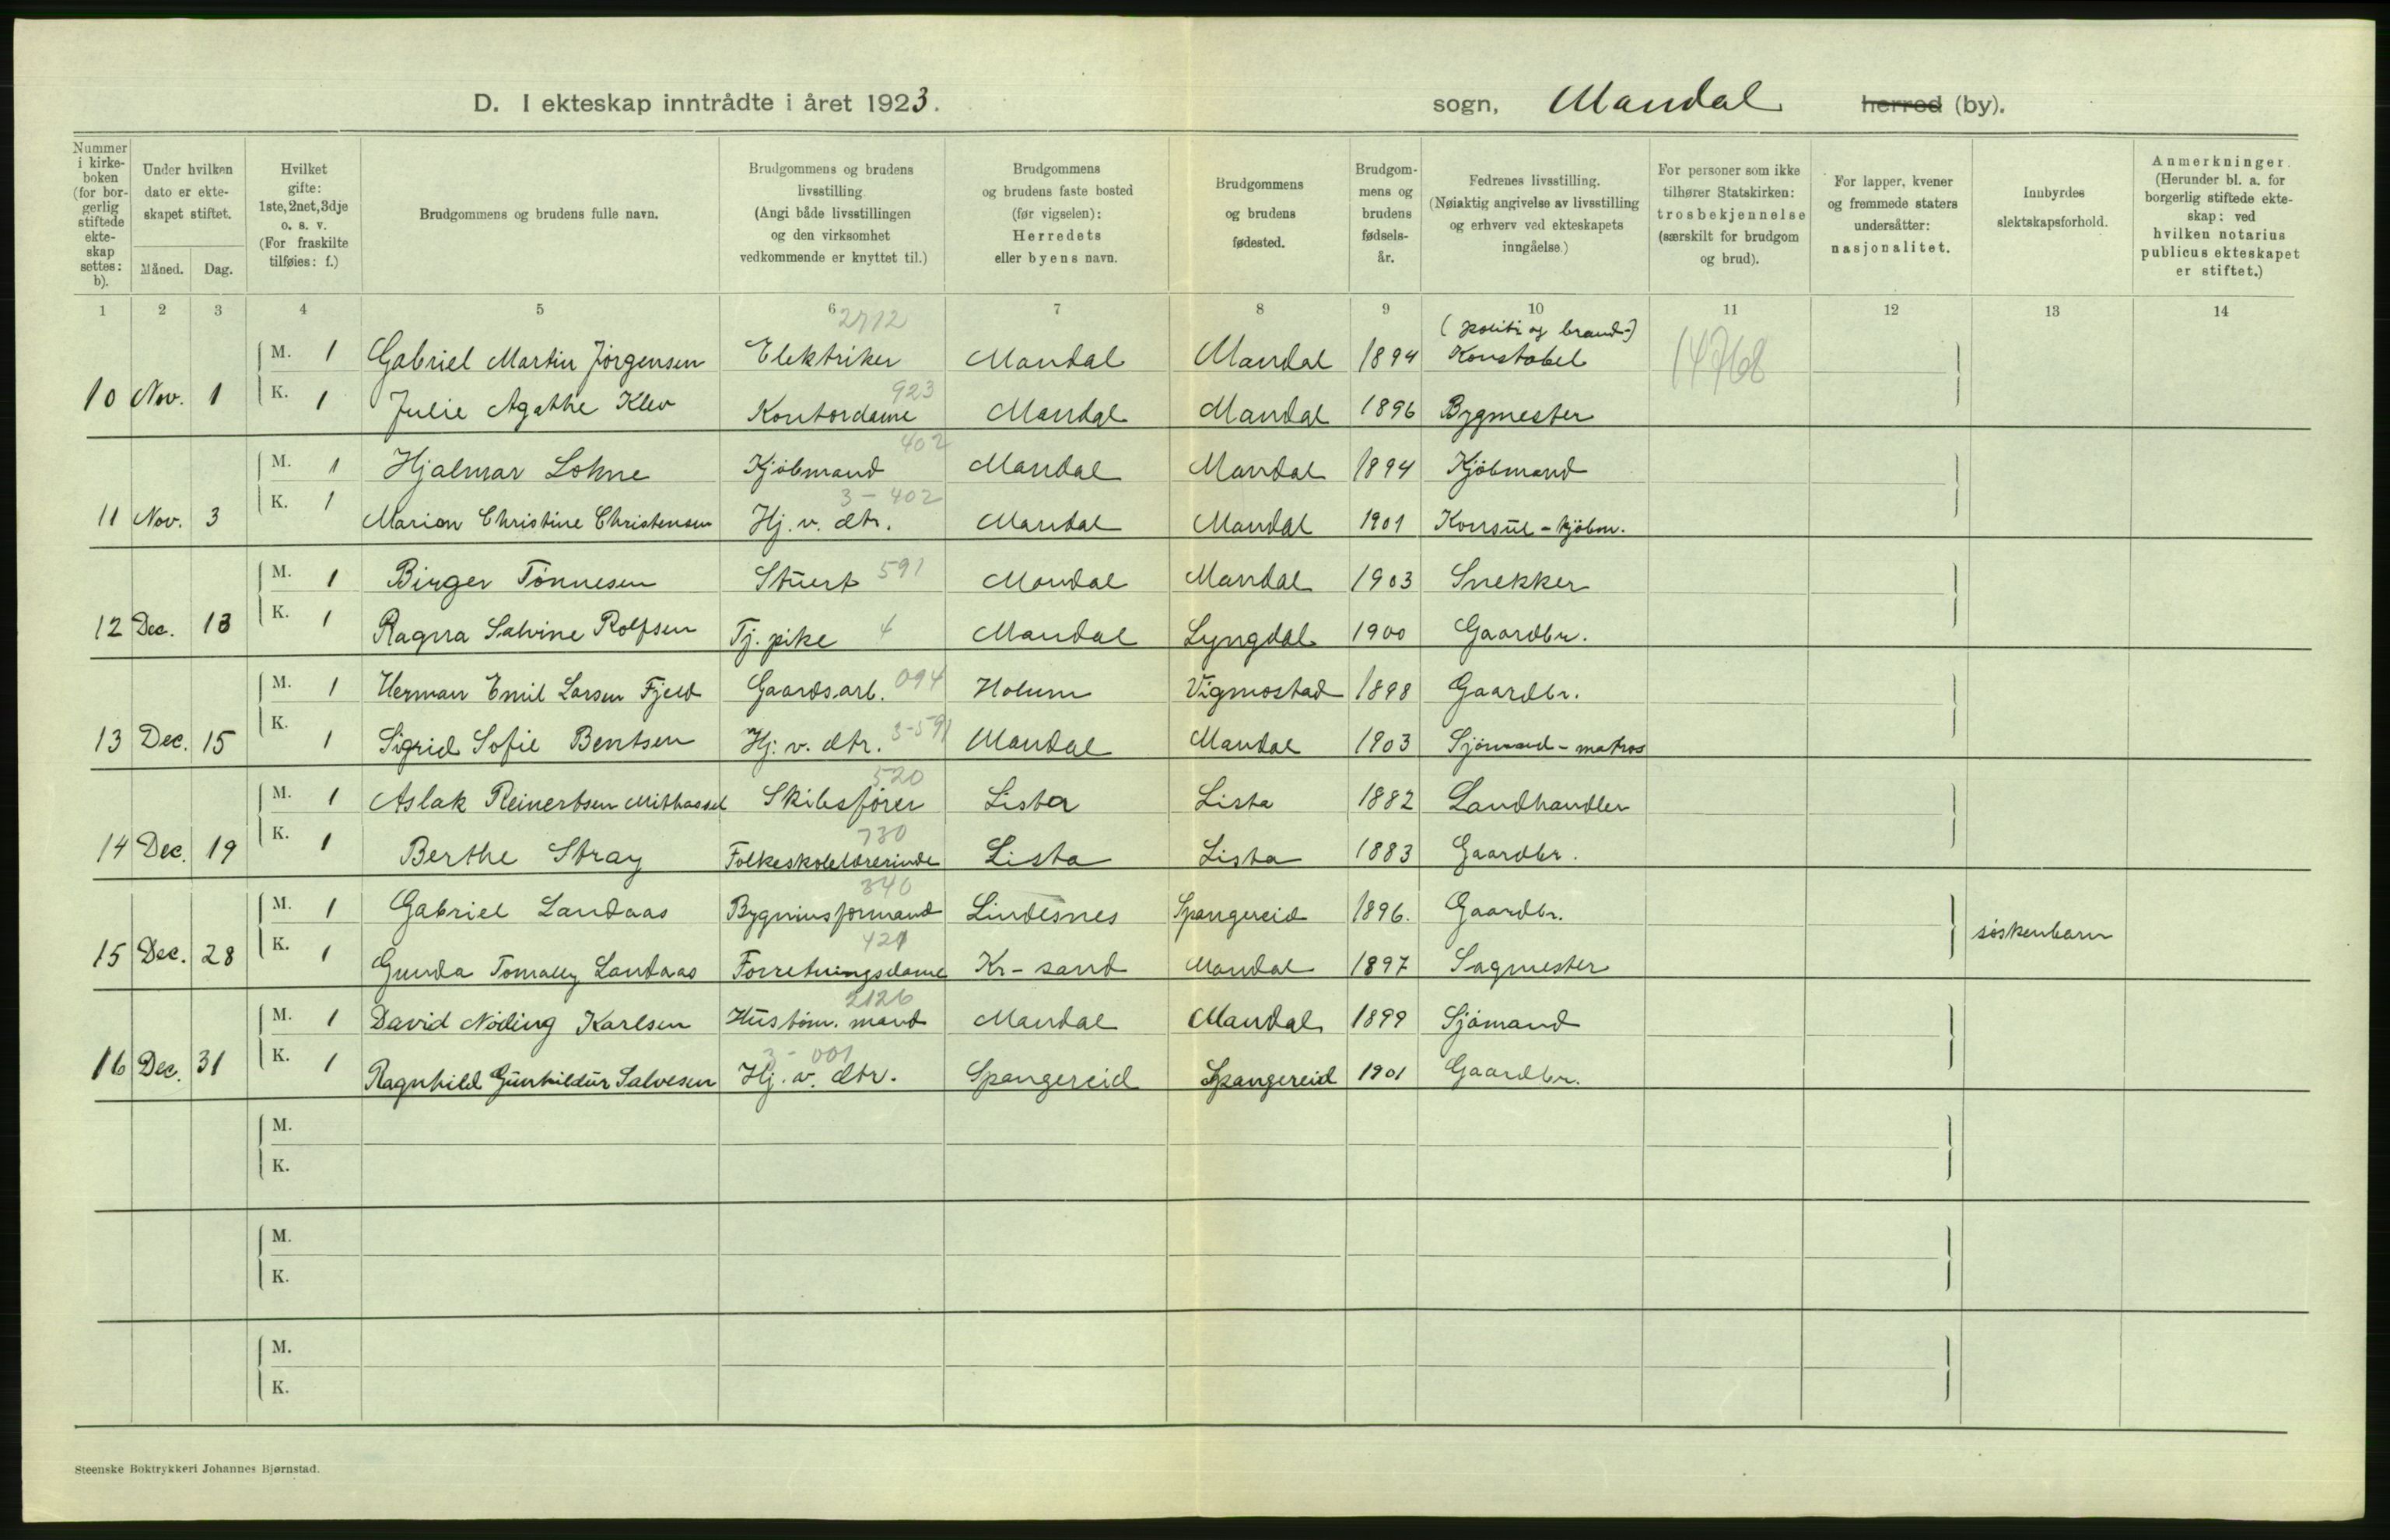 D. I ekteskap inntrådte i året 1923.
sogn, Mandal herred (by).
Nummer i kirkeboken (for borgerlig stiftede ekteskap settes: b).
Under hvilken dato er ekteskapet stiftet.
Måned. Dag.
Hvilket gifte: 1ste, 2net, 3dje o. s. v. (For fraskilte tilføies: f.)
Brudgommens og brudens fulle navn.
Brudgommens og brudens livsstilling. (Angi både livsstillingen og den virksomhet vedkommende er knyttet til.)
Brudgommens og brudens faste bosted (før vigselen): Herredets eller byens navn.
Brudgommens og brudens fødested.
Brudgommens og brudens fødselsår.
Fedrenes livsstilling. (Nøiaktig angivelse av livsstilling og erhverv ved ekteskapets inngåelse.)
For personer som ikke tilhører Statskirken: trosbekjennelse (særskilt for brudgom og brud).
For lapper, kvener og fremmede staters undersåtter: nasjonalitet.
Innbyrdes slektskapsforhold.
Anmerkninger. (Herunder bl. a. for borgerlig stiftede ekteskap: ved hvilken notarius publicus ekteskapet er stiftet.)
1 2 3 4 5 6 7 8 9 10 11 12 13 14
2712 (politi og brand-)
M. 1 Gabriel Martin Jörgensen Elektriker Mandal Mandal 1894 Konstabel 14768
10 Nov. 1 K. 1 Julie Agathe Klev Kontordame 923 Mandal Mandal 1896 Bygmester
M. 1 Hjalmar Lohne Kjöbmand 402 Mandal Mandal 1894 Kjöbmand
11 Nov. 3 K. 1 Marion Christine Christensen Hj. v. dtr. 3-402 Mandal Mandal 1901 Konsul - kjöbm.
M. 1 Birger Tönnesen Stuert 591 Mandal Mandal 1903 Snekker
12 Dec. 13 K. 1 Ragna Salvine Rolfsen Tj. pike 4 Mandal Lyngdal 1900 Gaardbr.
M. 1 Herman Emil Larsen Fjeld Gaardsarb. 094 Holum Vigmostad 1898 Gaardbr.
13 Dec. 15 K. 1 Sigrid Sofie Bentsen Hj. v. dtr. 3-591 Mandal Mandal 1903 Sjömand - matros
M. 1 Aslak Reinertsen Mithassel Skibsförer 520 Lista Lista 1882 Landhandler
14 Dec. 19 K. 1 Berthe Stray Folkeskolelærerinde 730 Lista Lista 1883 Gaardbr.
M. 1 Gabriel Landaas Bygninsformand 340 Lindesnes Spangereid 1896. Gaardbr.
15 Dec. 28 K. 1 Gunda Tomally Landaas Forretningsdame 421 Kr-sand Mandal 1897 Sagmester söskenbarn
M. 1 David Nöding Karlsen Hustöm. mand 2126 Mandal Mandal 1899 Sjömand
16 Dec. 31 K. 1 Ragnhild Gunhildur Salvesen Hj. v. dtr. 3-001 Spangereid Spangereid 1901 Gaardbr.
M.
K.
M.
K.
M.
K.
Steenske Boktrykkeri Johannes Bjørnstad.